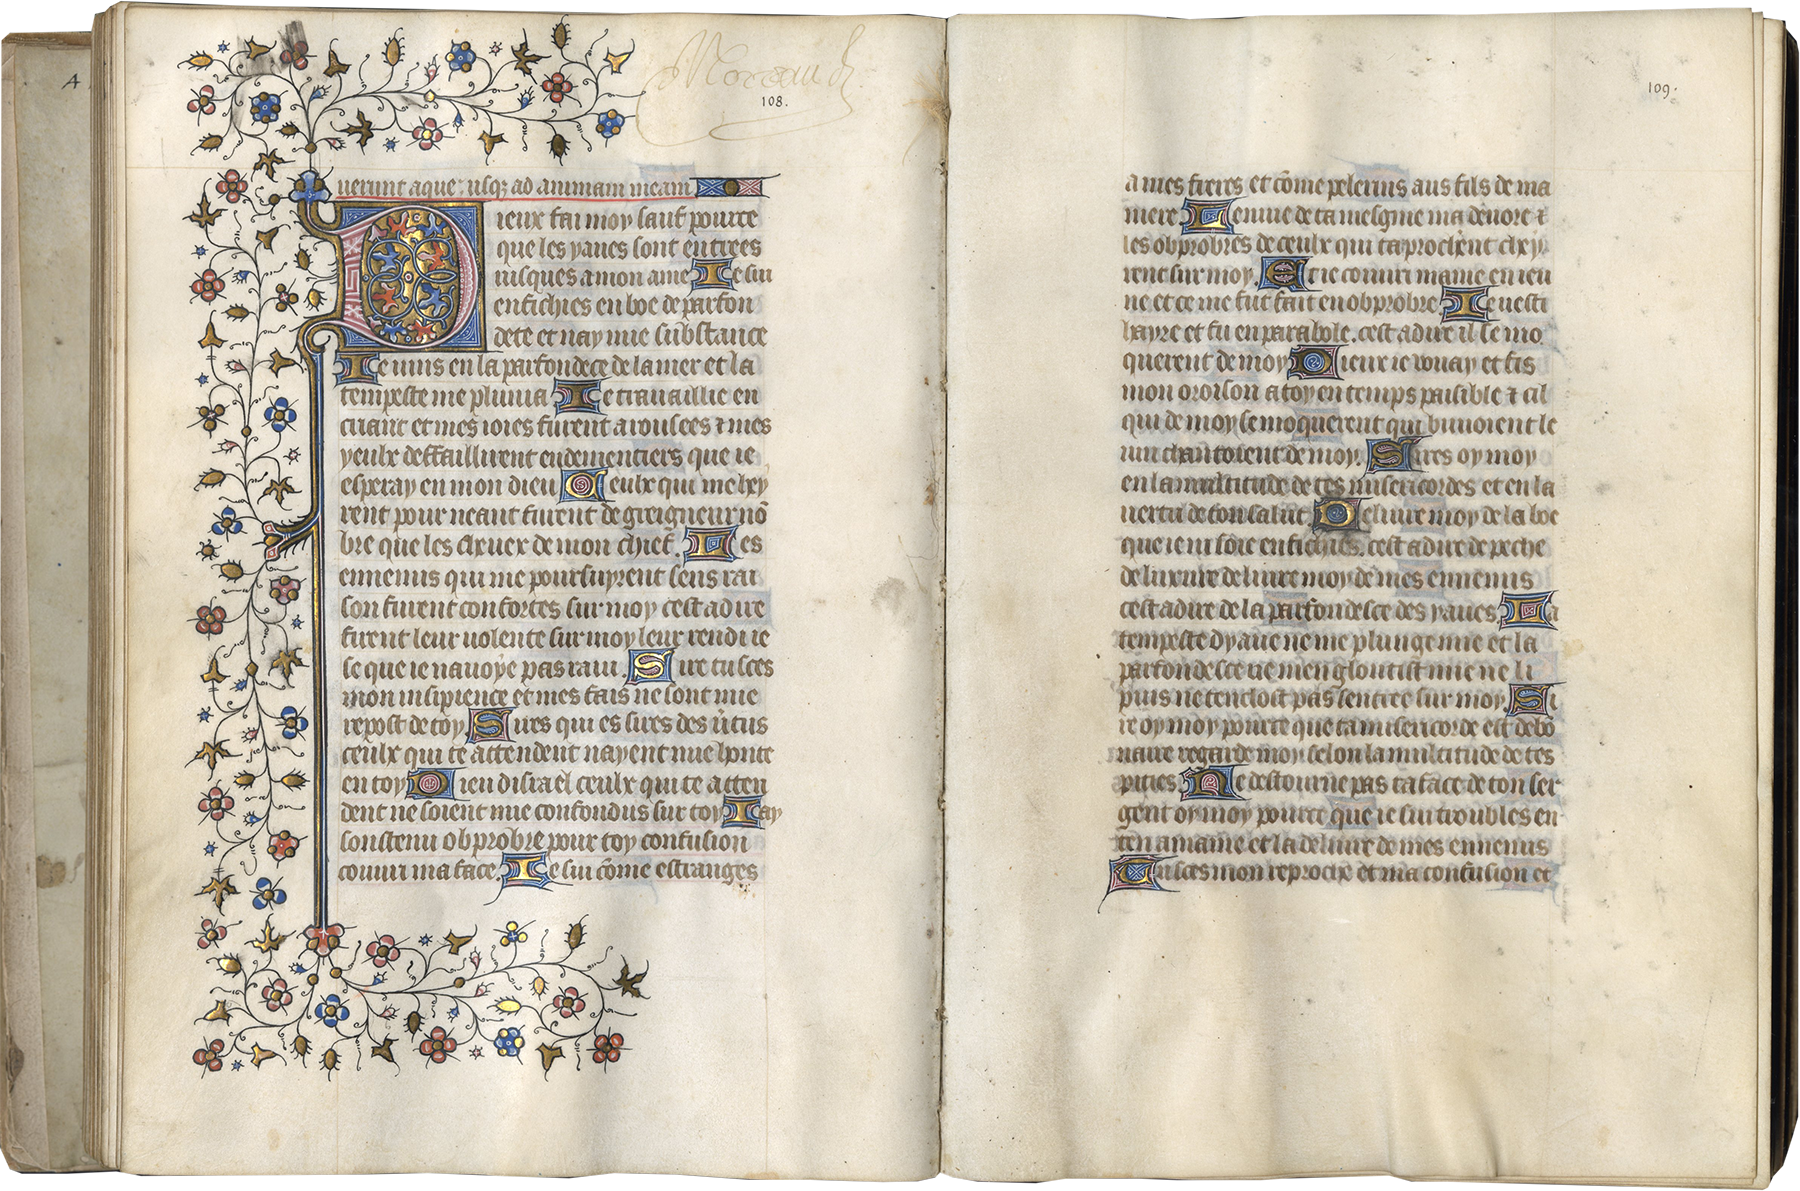 A
Moreau
108.
uerunt aque usqz ad animam meam
Dieux fai moy sauf pource
que les yaues sont entrees
iusques a mon ame Ie sui
enfichies en boe de parfon
dete et nay mie substance
Ie vins en la parfondece de la mer et la
tempeste me plunia Ie travaillie en
criant et mes ioies furent arousees ⁊ mes
yeulx deffaillirent endementiers que ie
esperay en mon dieu Ceulx qui me hay
rent pour neant furent de greigneur nō
bre que les cheuex de mon chief. Les
ennemis qui me poursuyrent sens rai
son furent confortes sur moy cest adire
firent leur volente sur moy leur rendi ie
se que ie navoye pas ravi. Sire tu sces
mon insipience et mes fais ne sont mie
repost de toy Sires qui es sires des v̄tus
ceulx qui te attendent nayent mie honte
en toy Dieu disrael ceulx qui te atten
dent ne soient mie confondus sur toy Iay
soustenu obprobre pour toy confusion
couuri ma face. Ie sui cōme estranges
109.
a mes freres et cōme pelerins aus fils de ma
mere Lenuie de ta mesgnie ma deuore ⁊
les obprobres de ceulx qui taprochent chey
rent sur moy. Et ie couuri mame en ieu
ne et ce me fut fait en obprobre Ie uesti
hayre et fu en parabole. cest adire il se mo
querent de moy Dieux ie vouay et fis
mon oroison a toy en temps paisible ⁊ cil
qui de moy se moquerent qui buuoient le
vin chantoient de moy. Sires oy moy
en la multitude de tes misericordes et en la
uertu de ton salut Deliure moy de la boe
que ie ni soie enfichies. cest adire de peche
de luxure deliure moy de mes ennemis
cest adire de la parfondesce des yaues La
tempeste dyaue ne me plunge mie et la
parfondesce ne menglontist mie ne li
puis ne renclost pas sentree sur moy. Si
re oy moy pource que ta misericorde est debo
naire regarde moy selon la multitude de tes
pities. Ne destourne pas ta face de ton ser
gent oy moy pource que ie sui troubles en
ten a mame et la deliure de mes ennemis
Tu sces mon reproche et ma confusion et